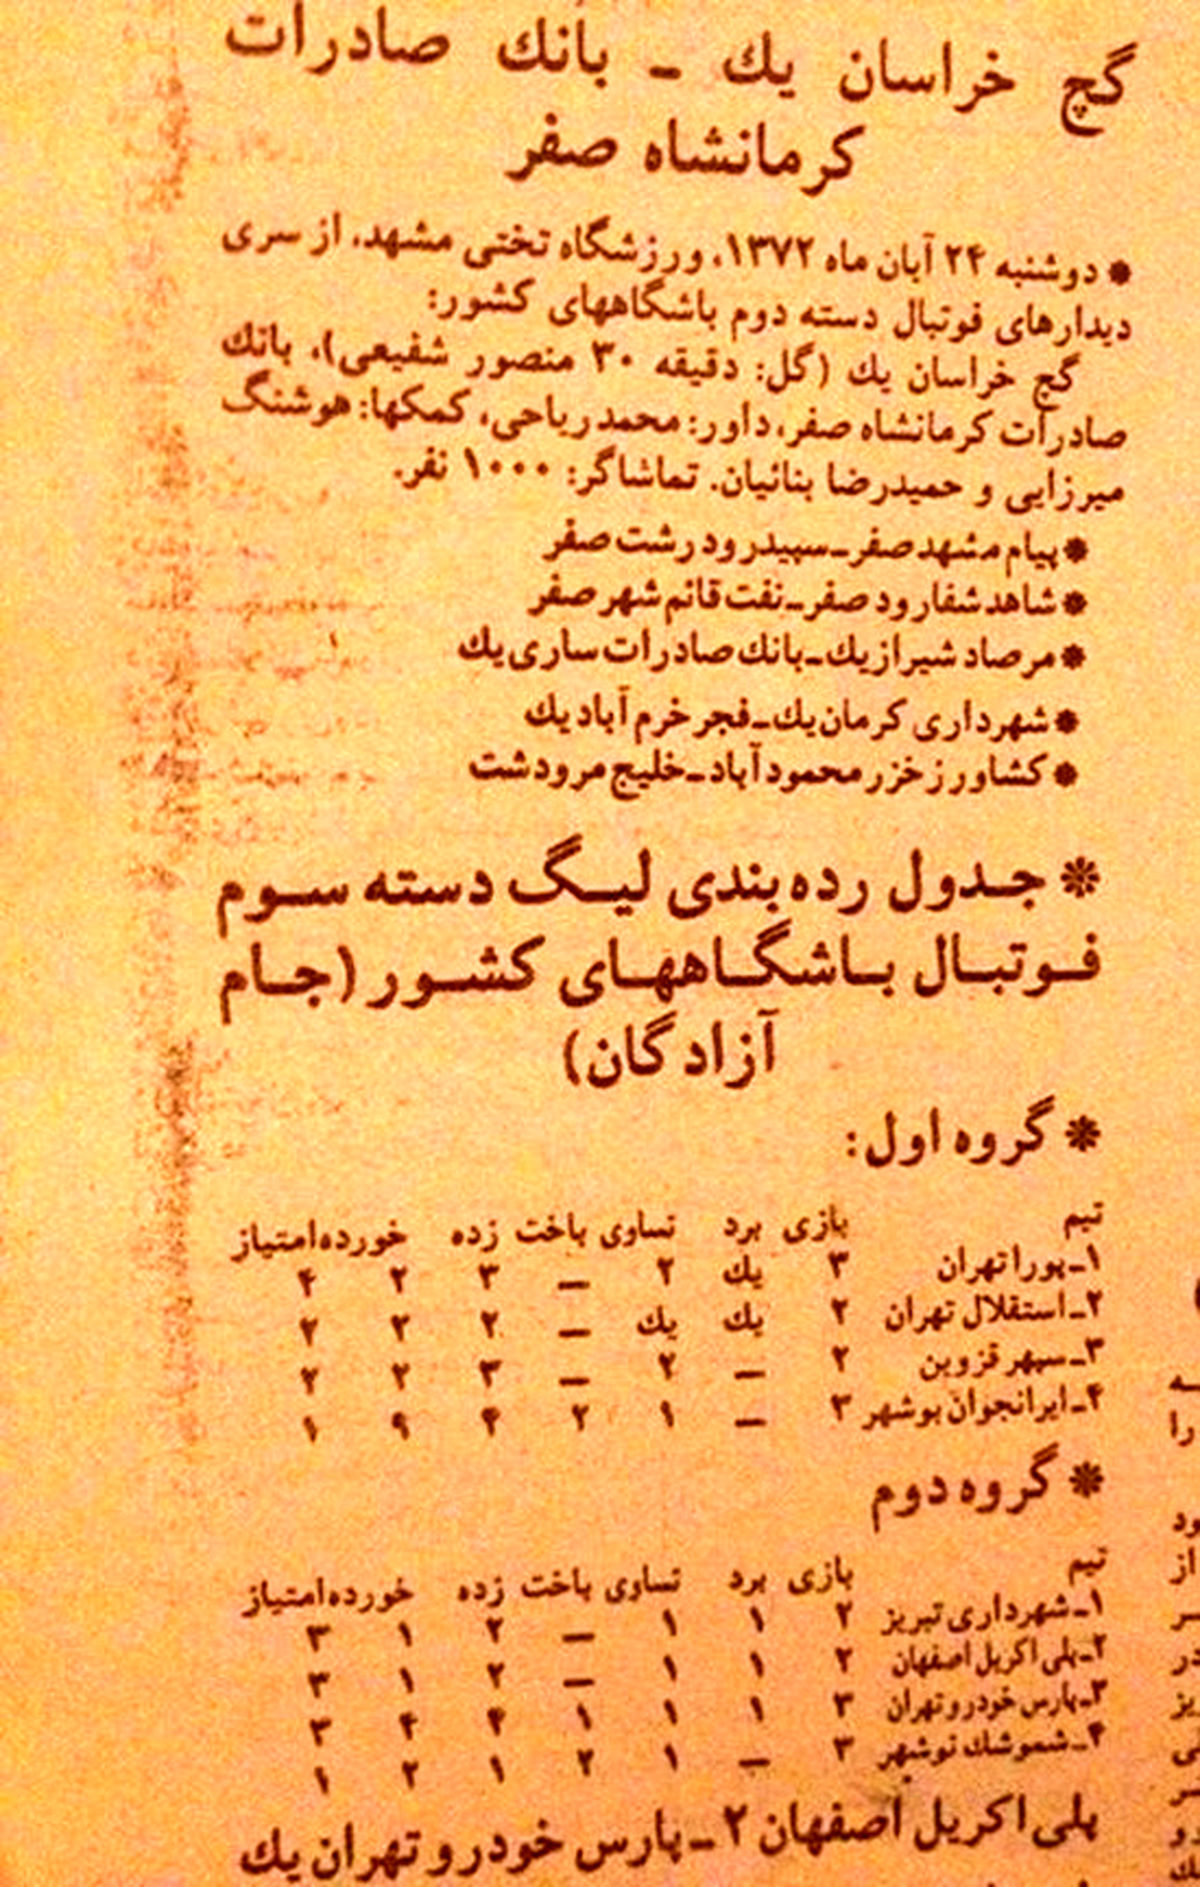 گچ خراسان یك ـ بانك صادرات
کرمانشاه صفر
* دوشنبه ۲۴ آبان ماه ۱۳۷۲، ورزشگاه تختی مشهد، از سری
دیدارهای فوتبال دسته دوم باشگاههای کشور:
گچ خراسان یك (گل: دقیقه ۳۰ منصور شفیعی)، بانك
صادرات کرمانشاه صفر، داور: محمد ریاحی، کمکها: هوشنگ
میرزایی و حمیدرضا بنائیان. تماشاگر: ۱۰۰۰ نفر.
* پیام مشهد صفر ـ سپیدرود رشت صفر
* شاهد شفارود صفر ـ نفت قائم شهر صفر
* مرصاد شیراز یك ـ بانك صادرات ساری یك
* شهرداری کرمان یك ـ فجر خرم آباد یك
* کشاورز خزر محمودآباد ـ خلیج مرودشت
* جدول رده بندی لیگ دسته سوم
فوتبال باشگاههای کشور (جام
آزادگان)
* گروه اول:
تیم بازی برد تساوی باخت زده خورده امتیاز
۱ـ پورا تهران ۳ یك ۲ ـ ۳ ۲ ۴
۲ـ استقلال تهران ۲ یك یك ـ ۲ ۲ ۲
۳ـ سپهر قزوین ۲ ـ ۲ ـ ۳ ۲ ۲
۴ـ ایرانجوان بوشهر ۳ ـ ۱ ۲ ۴ ۹ ۱
* گروه دوم
تیم بازی برد تساوی باخت زده خورده امتیاز
۱ـ شهرداری تبریز ۲ ۱ ۱ ـ ۲ ۱ ۳
۲ـ پلی اکریل اصفهان ۲ ۱ ۱ ـ ۲ ۱ ۳
۳ـ پارس خودرو تهران ۳ ۱ ۱ ۱ ۴ ۴ ۳
۴ـ شموشك نوشهر ۳ ـ ۱ ۲ ۱ ۲ ۱
پلی اکریل اصفهان ۲ ـ پارس خودرو تهران یك